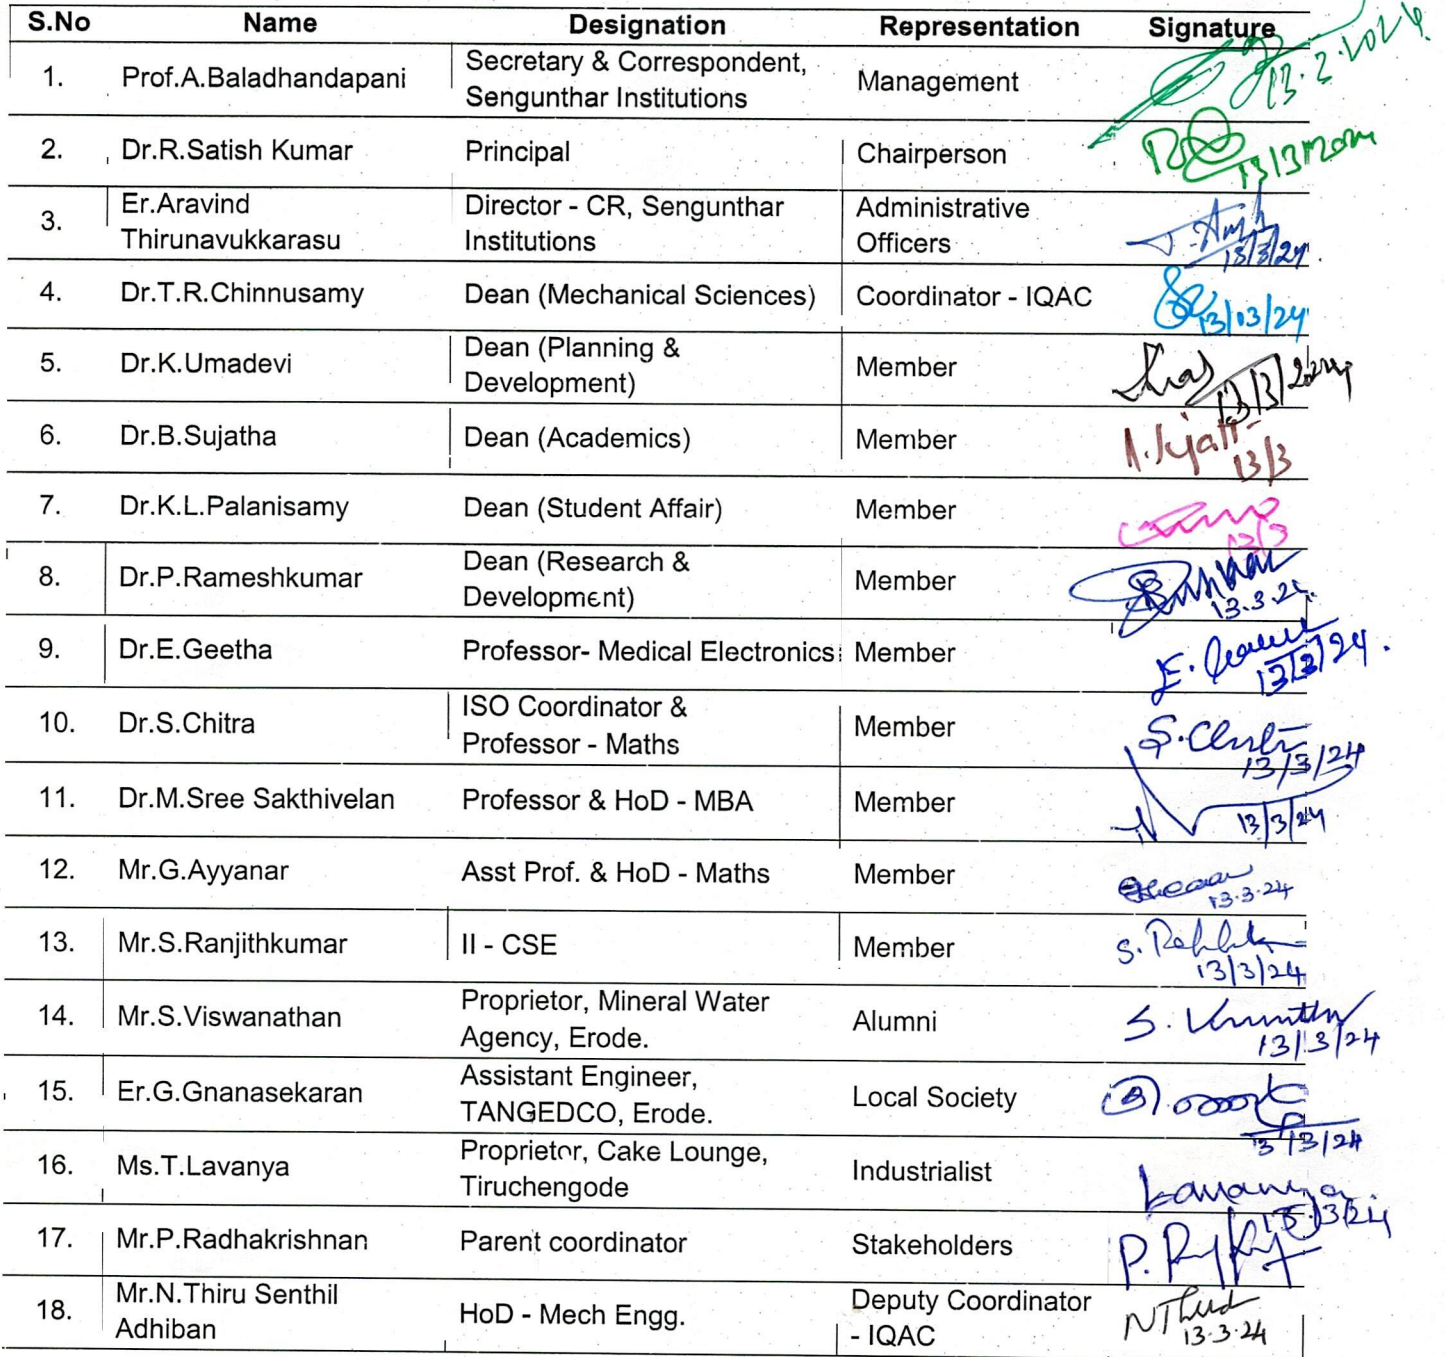 S.No Name Designation Representation Signature
1. Prof.A.Baladhandapani Secretary & Correspondent, Sengunthar Institutions Management 13.2.2024
2. Dr.R.Satish Kumar Principal Chairperson 13/3/2024
3. Er.Aravind Thirunavukkarasu Director - CR, Sengunthar Institutions Administrative Officers 13/3/24
4. Dr.T.R.Chinnusamy Dean (Mechanical Sciences) Coordinator - IQAC 13/03/24
5. Dr.K.Umadevi Dean (Planning & Development) Member 13/3/2024
6. Dr.B.Sujatha Dean (Academics) Member 13/3
7. Dr.K.L.Palanisamy Dean (Student Affair) Member 13/3
8. Dr.P.Rameshkumar Dean (Research & Development) Member 13.3.24
9. Dr.E.Geetha Professor- Medical Electronics Member 13/3/24.
10. Dr.S.Chitra ISO Coordinator & Professor - Maths Member S.Chitra 13/3/24
11. Dr.M.Sree Sakthivelan Professor & HoD - MBA Member 13/3/24
12. Mr.G.Ayyanar Asst Prof. & HoD - Maths Member 13.3.24
13. Mr.S.Ranjithkumar II - CSE Member 13/3/24
14. Mr.S.Viswanathan Proprietor, Mineral Water Agency, Erode. Alumni 13/3/24
15. Er.G.Gnanasekaran Assistant Engineer, TANGEDCO, Erode. Local Society 13/3/24
16. Ms.T.Lavanya Proprietor, Cake Lounge, Tiruchengode Industrialist Lavanya 13/3/24
17. Mr.P.Radhakrishnan Parent coordinator Stakeholders
18. Mr.N.Thiru Senthil Adhiban HoD - Mech Engg. Deputy Coordinator - IQAC 13.3.24